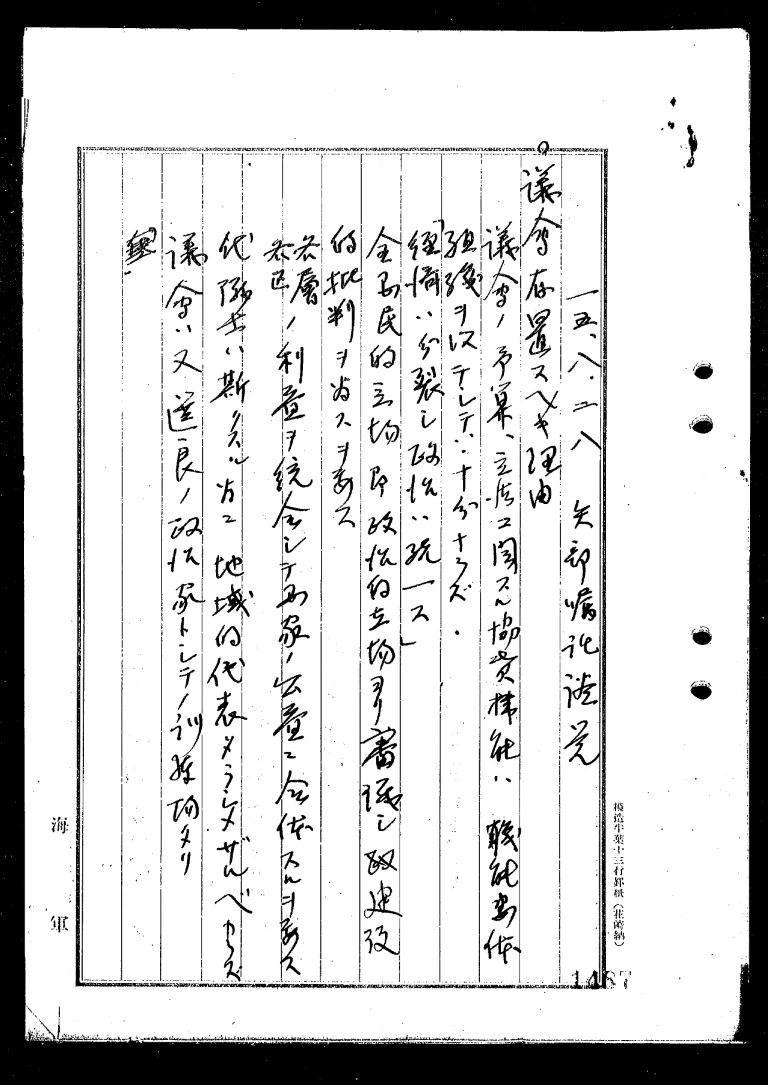 一五、八、二八 矢部嘱託談 覚
議会存置スヘキ理由
議会ノ予算、立法ニ関スル協賛機能ハ 職能団体
組織ヲ以テシテハ十分ナラズ.
「経済ハ分裂シ政治ハ統一ス」
全国民的立場 即政治的立場ヨリ審議シ
的批判ヲ為スヲ要ス
各層
各区ノ利益ヲ統合シテ国家ノ公益ニ合体スルヲ要ス
代議士ハ斯クスル為ニ地域的代表タラシメザルベカラズ
議会ハ又選良ノ政治家トシテノ訓練場タリ
海軍
模造半葉十三行罫紙
1467